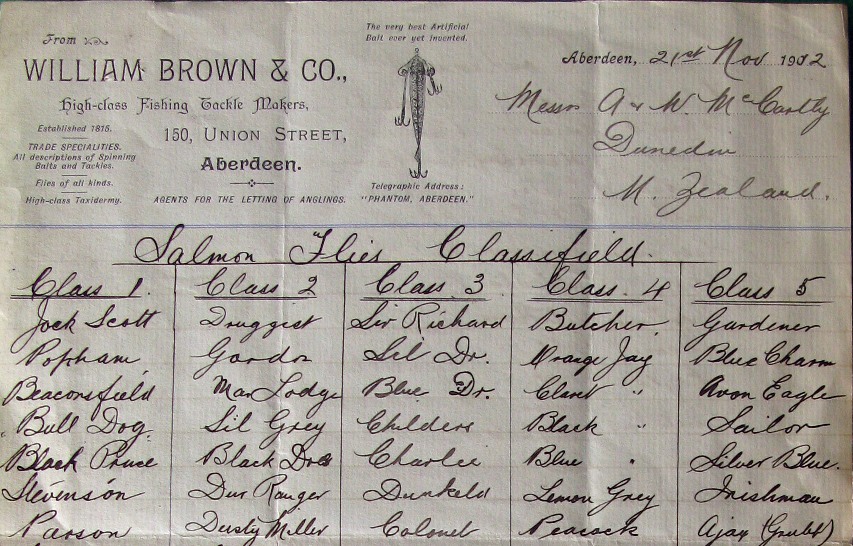 From
WILLIAM BROWN & CO.,
High-class Fishing Tackle Makers,
Established 1815.
TRADE SPECIALITIES.
All descriptions of Spinning
Baits and Tackles.
Flies of all kinds.
High-class Taxidermy.
150, UNION STREET,
Aberdeen.
AGENTS FOR THE LETTING OF ANGLINGS.
The very best Artificial
Bait ever yet invented.
Telegraphic Address:
"PHANTOM, ABERDEEN."
Aberdeen, 21st Nov 1902
Messrs A & W. McCarthy
Dunedin
N. Zealand.
Salmon Flies Classifield.
Class 1. Class 2 Class 3 Class. 4 Class 5
Jock Scott Druggist Sir Richard Butcher. Gardener
Popham Gordon Sil Dr. Orange Jay Blue Charm
Beaconsfield Mar Lodge Blue Dr. Claret " Avon Eagle
Bull Dog. Sil Grey Childers Black " Sailor
Black Prince Black Charlie Blue " Silver Blue.
Stevenson Dur Ranger Dunkeld Lemon Grey Irishman
Parson Dusty Miller Colonel Peacock Ajax (Grubb)